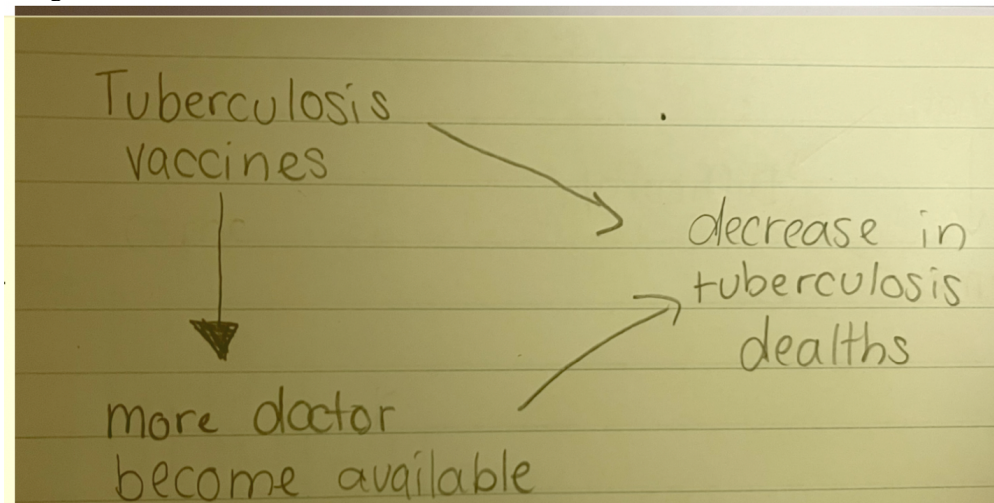 Tuberculosis
vaccines
decrease in
tuberculosis
dealths
more doctor
become available